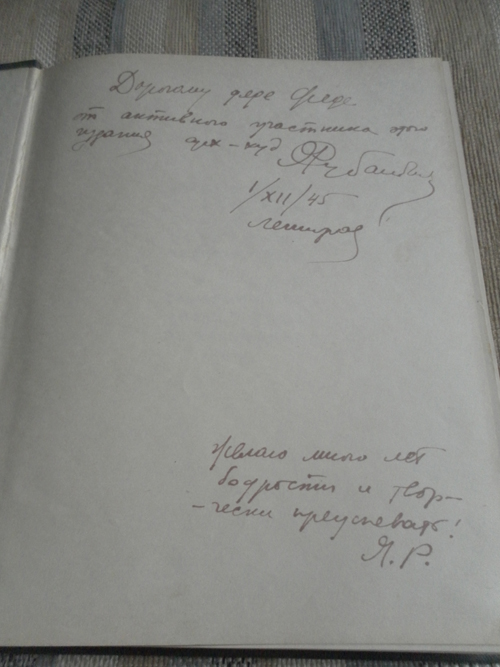 Дорогому дяде Феде
от активного участника этого
издания арх-худ ЯРубанчик
1/XII/45
Ленинград
Желаю много лет
бодрости и твор-
-чески преуспевать!
Я.Р.